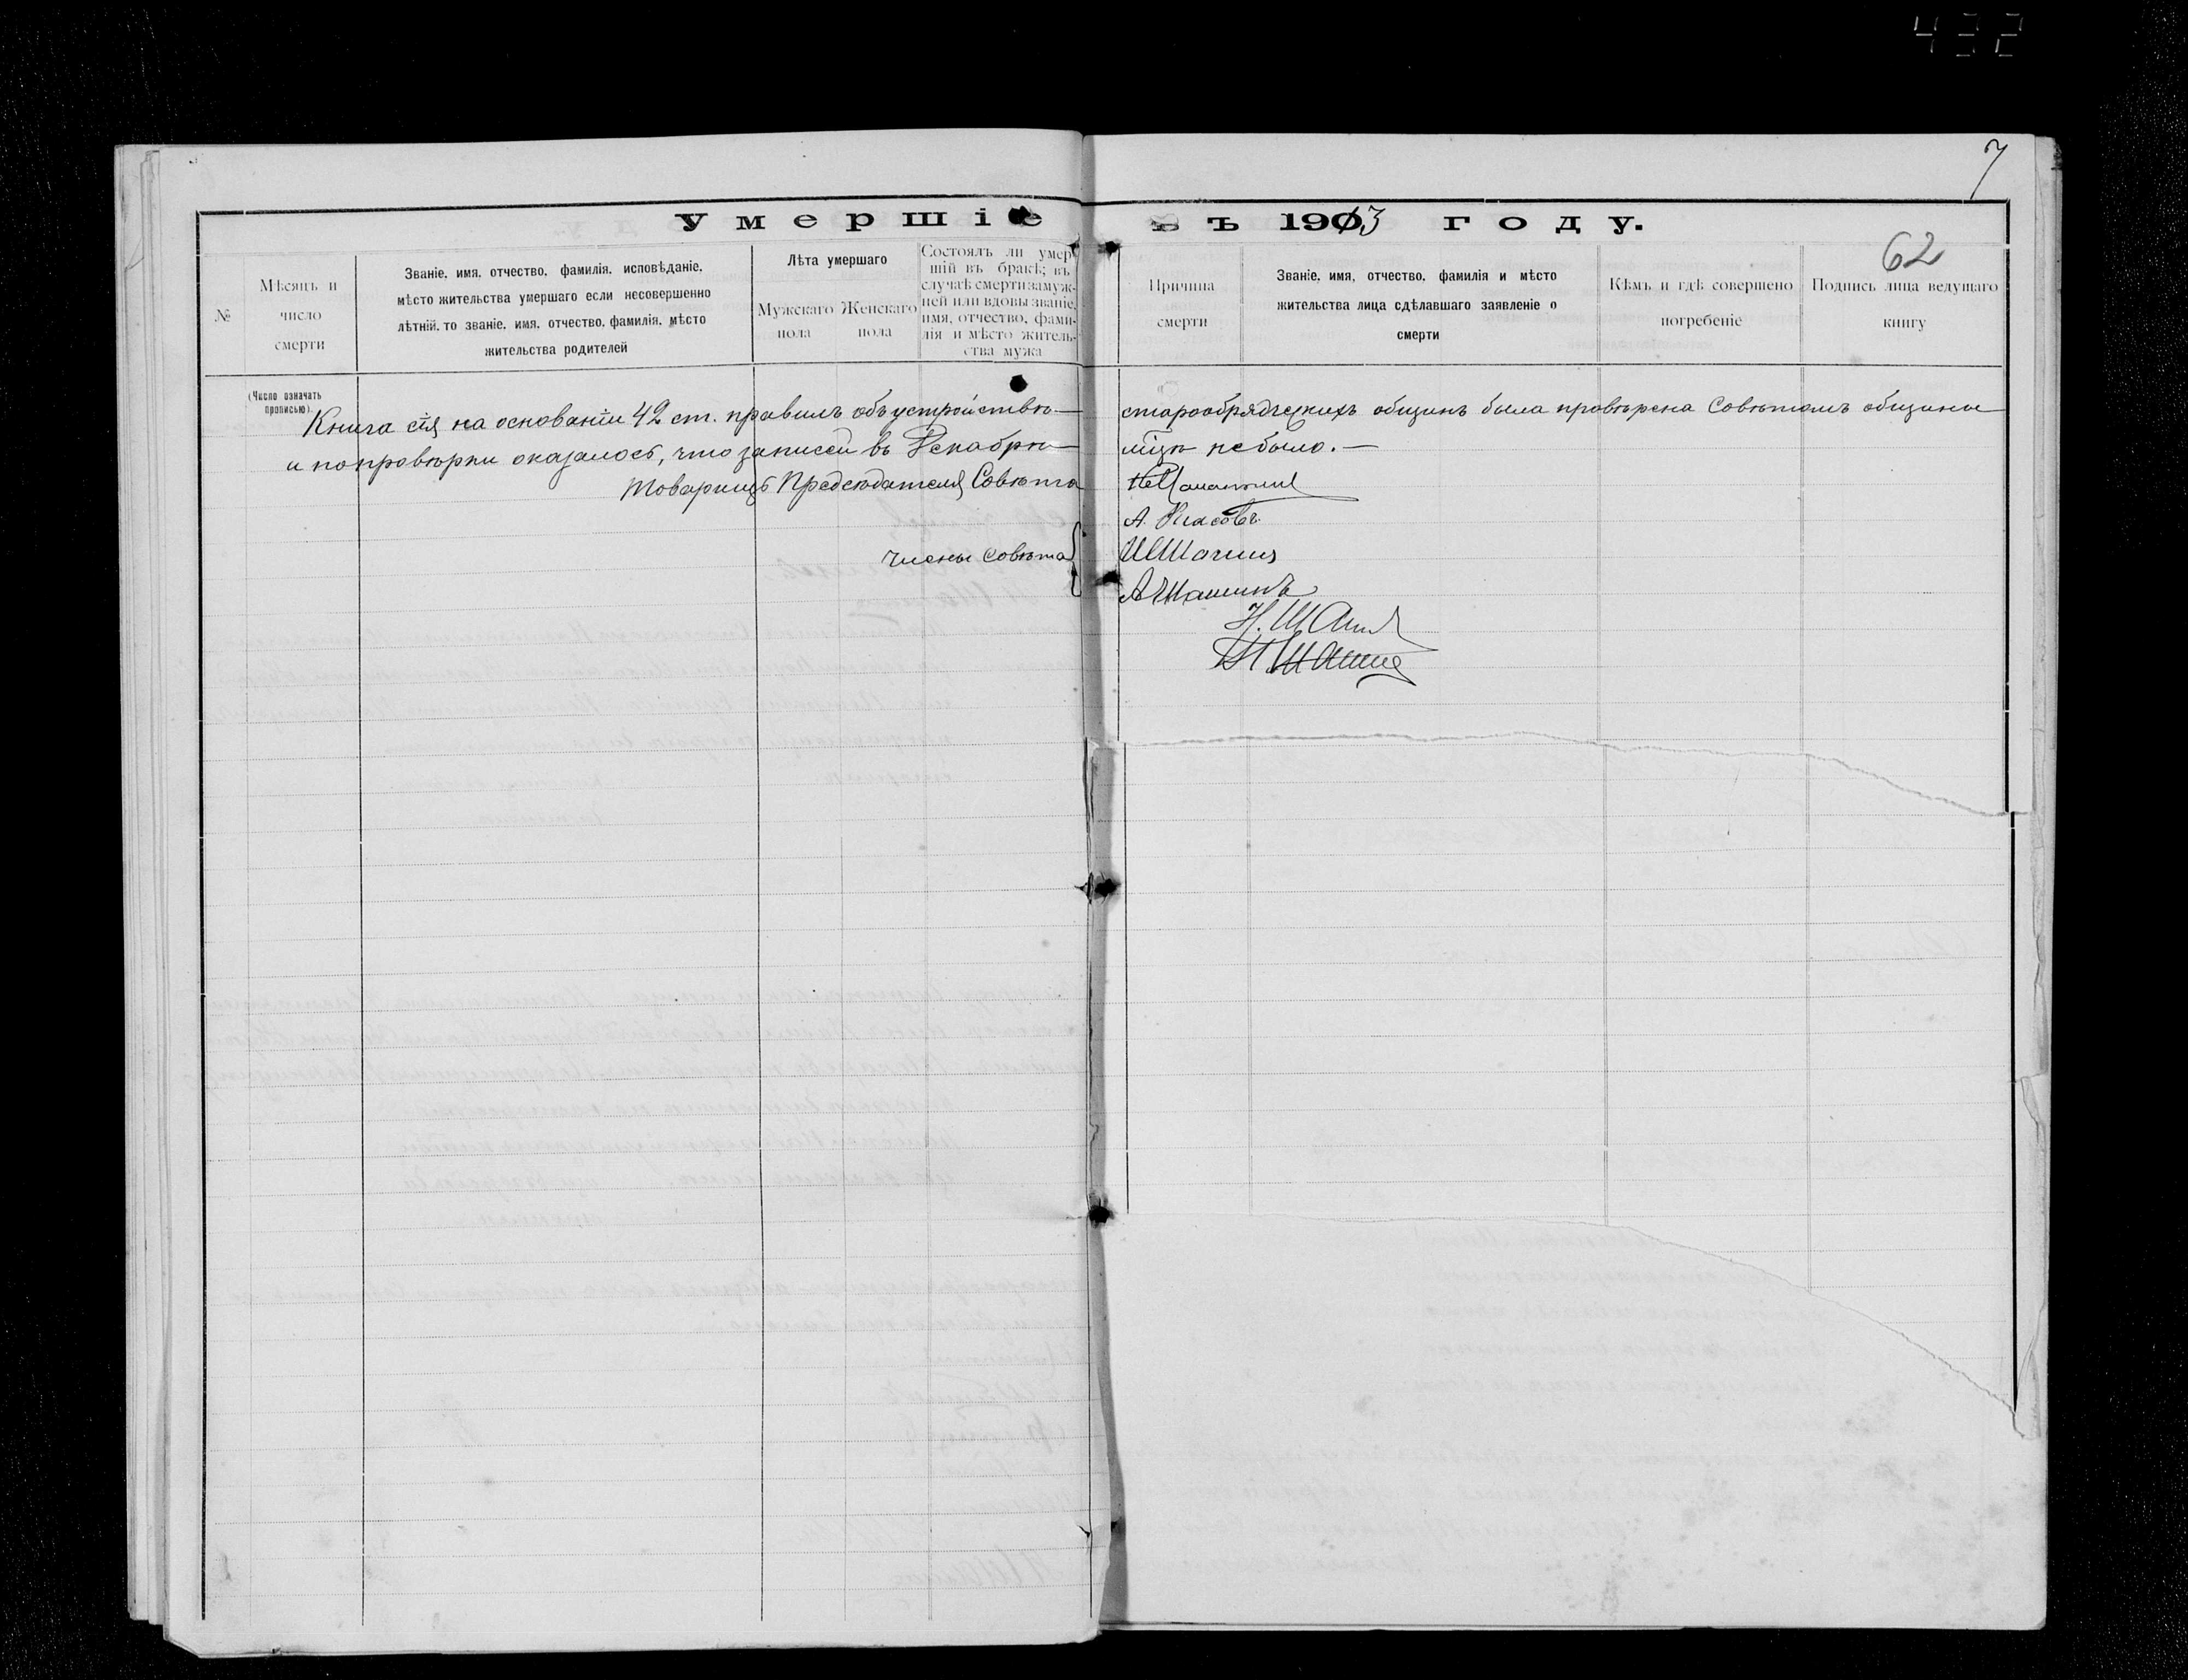 432
7
умершіе въ 1903 году.
62
№
Мѣсяцъ и
число
смерти
Званіе, имя, отчество, фамилія, исповѣданіе,
мѣсто жительства умершаго если несовершенно
лѣтній, то званіе, имя, отчество, фамилія, мѣсто
жительства родителей
Лѣта умершаго
Мужскаго
пола
Женскаго
пола
Состоялъ ли умер
шій въ бракѣ; въ
случаѣ смерти замуж-
ней или вдовы званіе,
имя, отчество, фами-
лія и мѣсто житель-
ства мужа
Причина
смерти
Званіе, имя, отчество, фамилія и мѣсто
жительства лица сдѣлавшаго заявленіе о
смерти
Кѣмъ и гдѣ совершено
погребеніе
Подпись лица ведущаго
книгу
(Число означать
прописью).
Книга сія на основаніи 42 ст. правилъ объ устройствѣ старообрядческихъ общинъ была провѣрена Совѣтомъ общины
и по провѣрки оказалось, что записей въ Декабрѣ мцѣ не было.
Товарищъ Предсѣдателя Совѣта
Члены Совѣта
А. Власовъ
И Шашинъ
А Шашинъ
Н. Шашинъ